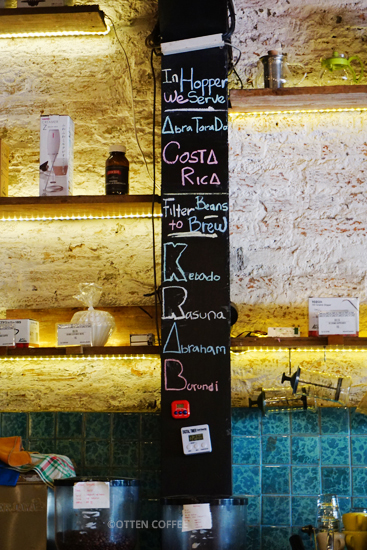 In Hopper
We Serve
AbraTaraDa
COSTA
RICA
Filter Beans
to Brew
Kebado
Rasuna
Abraham
Burundi
©OTTEN COFFEE